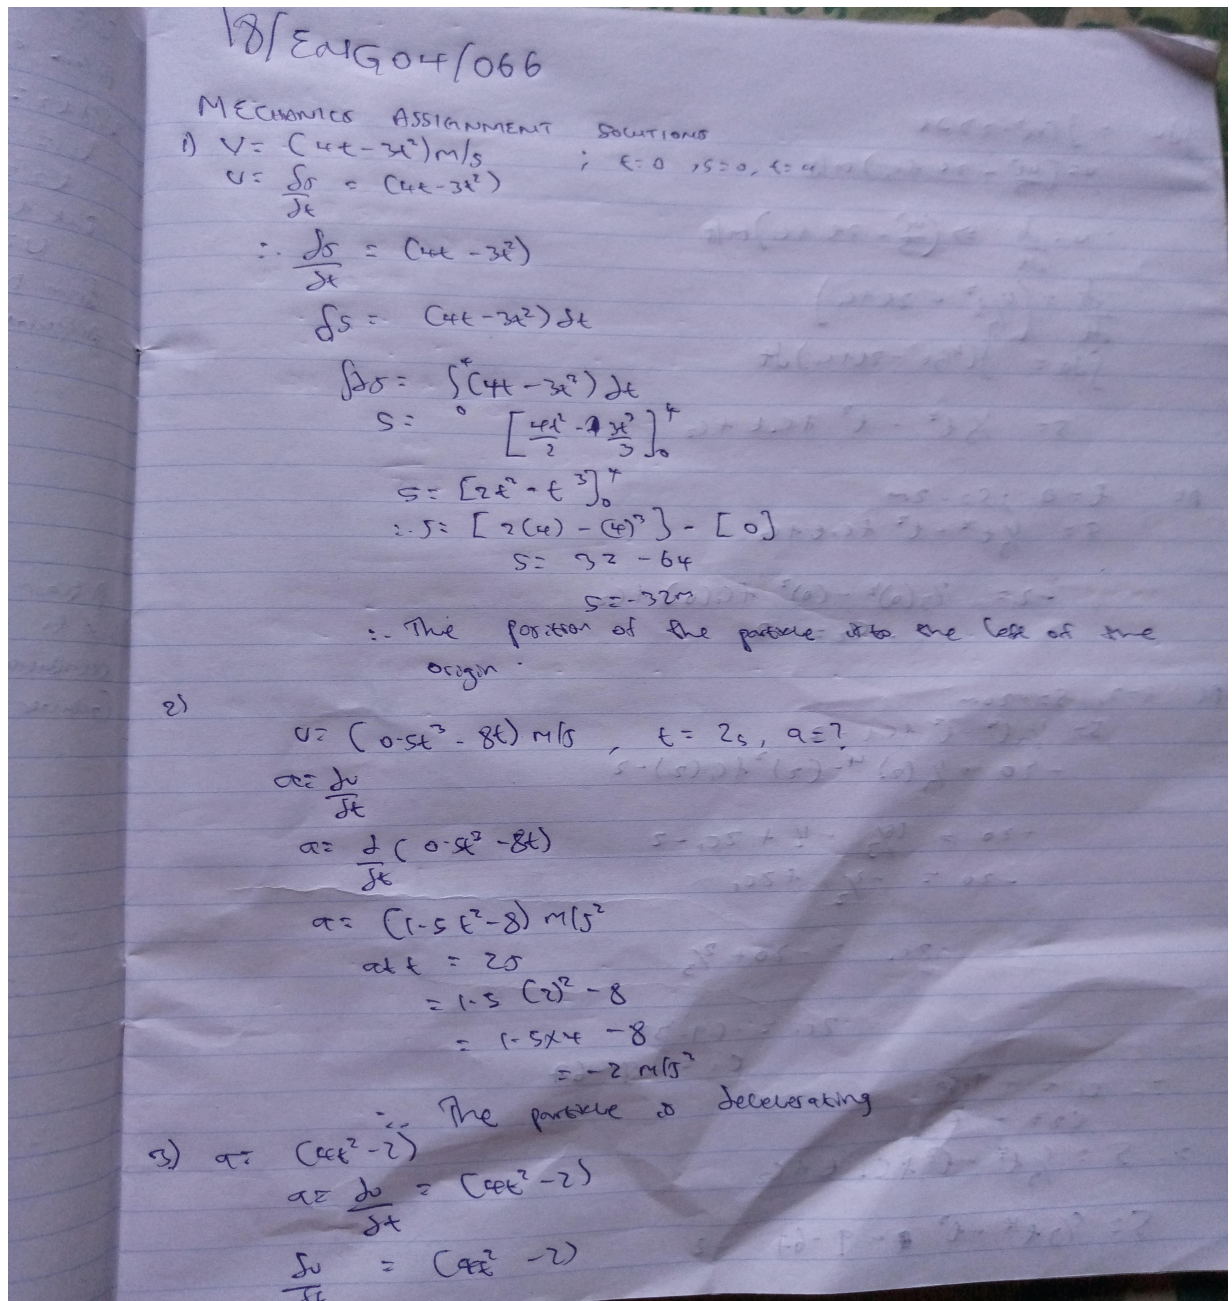 18/ENG04/066
MECHANICS ASSIGNMENT SOLUTIONS
1) V= (4t-3t²)m/s ; t=0, s=0, t=4
v= ds/dt = (4t-3t²)
∴ ds/dt = (4t-3t²)
ds = (4t-3t²) dt
∫ds = ∫₀⁴(4t-3t²) dt
s= [4t²/2 - 3t³/3]₀⁴
s= [2t²-t³]₀⁴
∴ s= [2(4) - (4)³] - [0]
s= 32 - 64
s=-32m
∴ The position of the particle is to the left of the
origin.
2)
v= (0.5t³-8t) m/s, t= 2s, a=?
a= dv/dt
a= d/dt (0.5t³-8t)
a= (1.5t²-8) m/s²
at t = 2s
= 1.5 (2)² - 8
= 1.5×4 - 8
= -2 m/s²
∴ The particle is decelerating
3) a= (4t²-2)
a= dv/dt = (4t²-2)
dv/dt = (4t²-2)